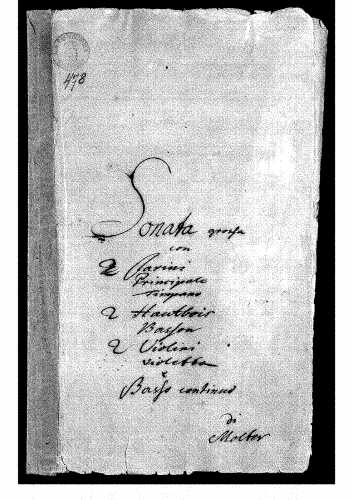 478
Sonata grossa
con
2 Clarini
Principale
Timpano
2 Hautbois
Basson
2 Violini
violetta
è
Basso continuo
di
Molter